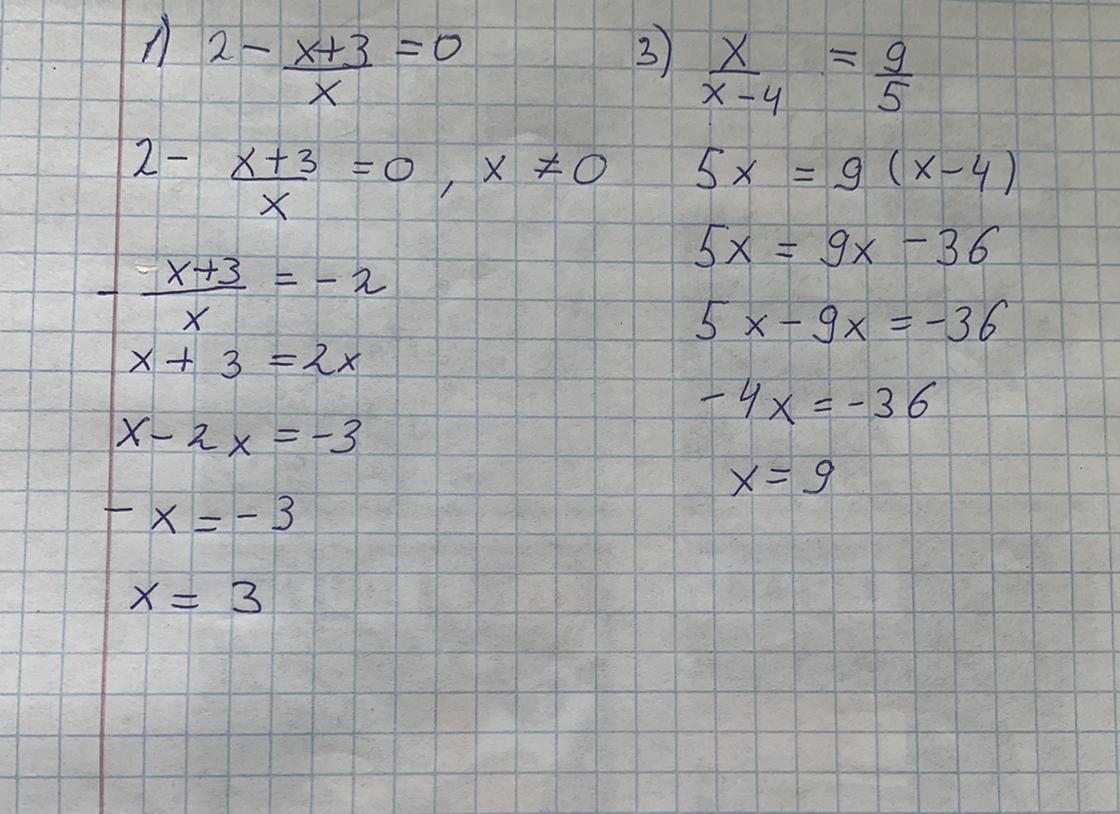 1) 2 - (x+3)/x = 0
2 - (x+3)/x = 0, x ≠ 0
- (x+3)/x = -2
x + 3 = 2x
x - 2x = -3
-x = -3
x = 3
3) x/(x-4) = 9/5
5x = 9 (x-4)
5x = 9x - 36
5x - 9x = -36
-4x = -36
x = 9